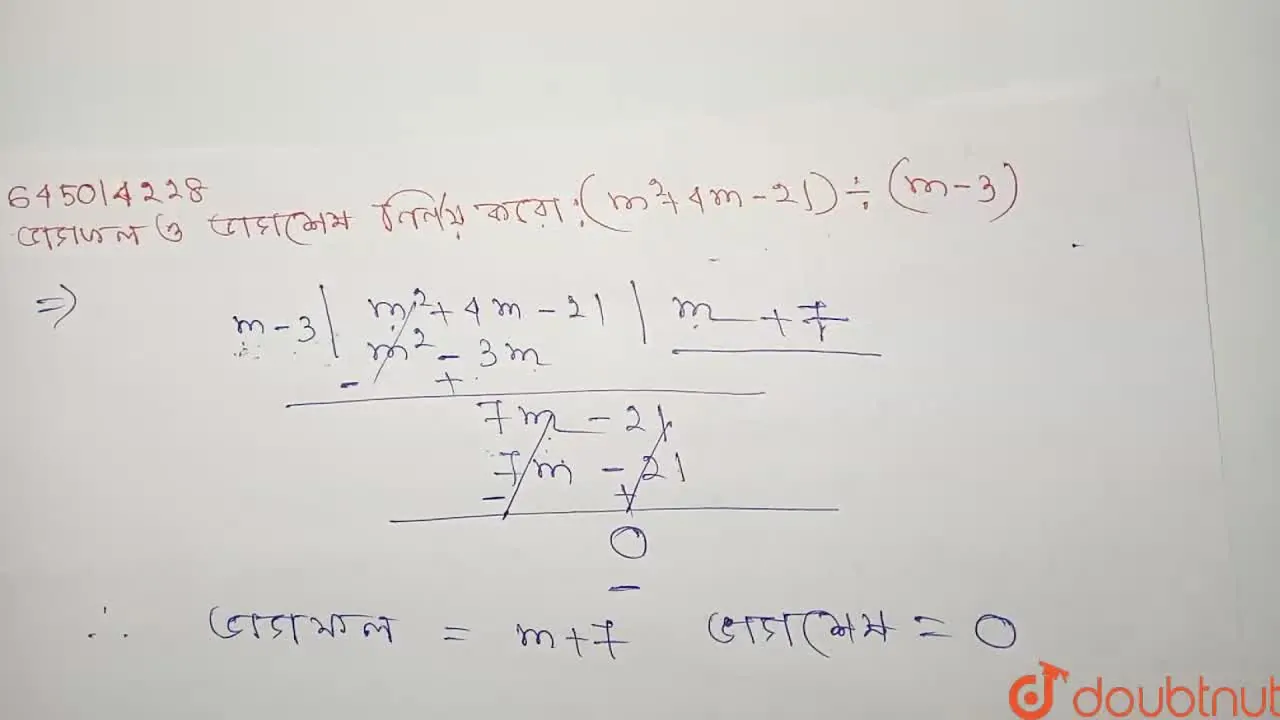 645014228
ভাগফল ও ভাগশেষ নির্ণয় করো : (m²+4m-21) ÷ (m-3)
⇒ m-3 | m²+4m-21 | m+7
m² - 3m
- +
7m - 21
7m - 21
- +
0
∴ ভাগফল = m+7 ভাগশেষ = 0
doubtnut